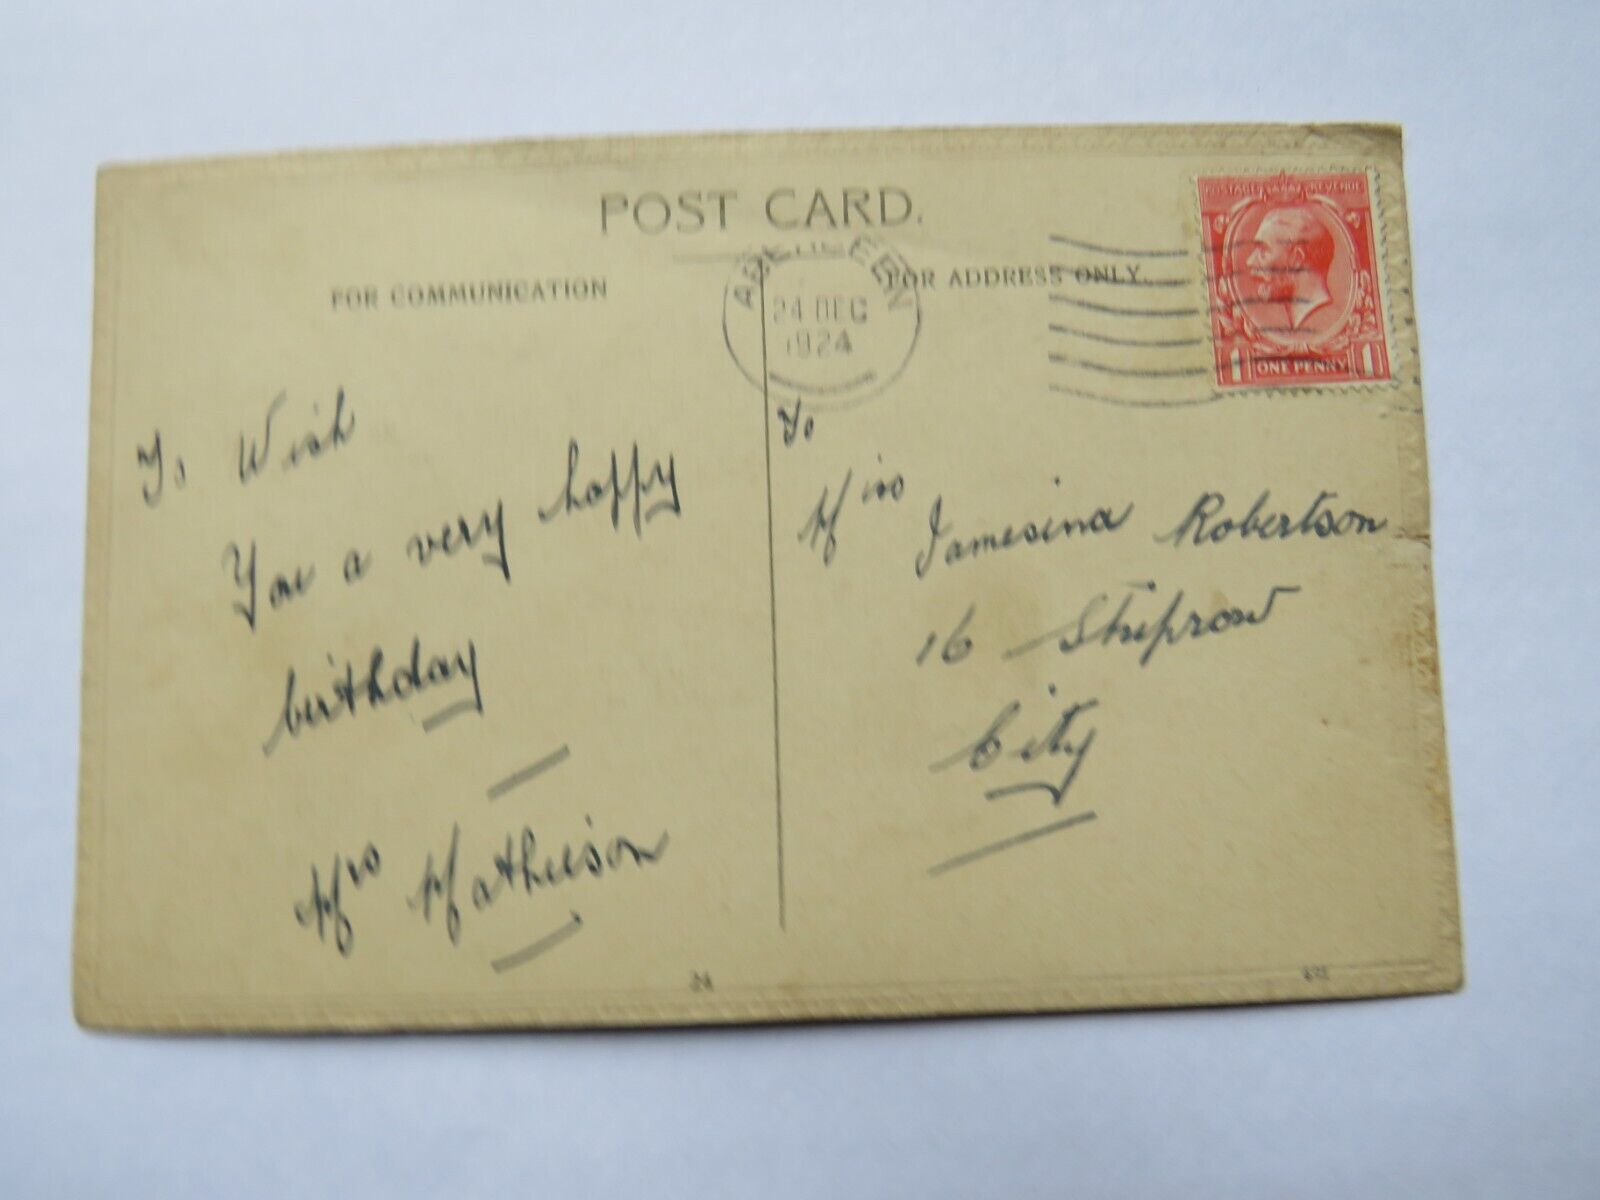 POST CARD.
FOR COMMUNICATION
FOR ADDRESS ONLY.
ABERDEEN
24 DEC
1924
POSTAGE REVENUE
1 ONE PENNY 1
To Wish
You a very happy
birthday
Mrs Mathieson
To
Miss Jamesina Robertson
16 Shiprow
City
24